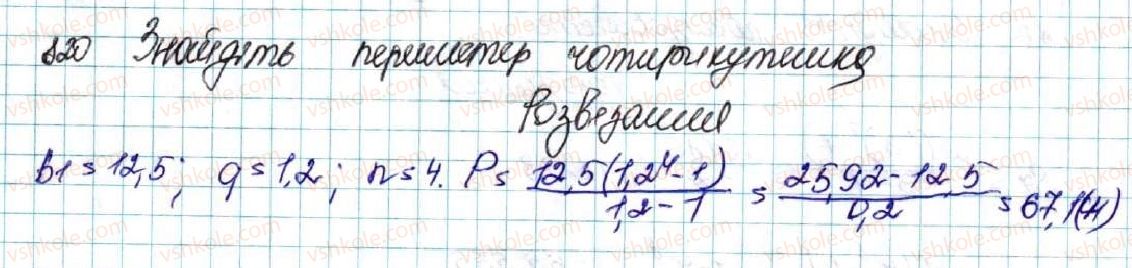 820 Знайдіть периметр чотирикутника
Розв'язання
b1 = 12,5; q = 1,2; n = 4. P = 12,5(1,2^4 - 1) / 1,2 - 1 = 25,92 - 12,5 / 0,2 = 67,1(м)